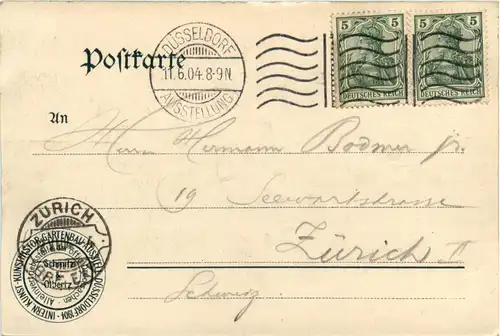 Postkarte
DÜSSELDORF
11.6.04.8-9N.
AUSSTELLUNG
5 5
DEUTSCHES REICH
5 5
DEUTSCHES REICH
An
Herrn Hermann Bodmer jr.
19 Seewartstrasse
Zürich II
Schweiz
ZÜRICH
INTERN. KUNST- KUNSTHISTOR. GARTENBAU-AUSSTELL. DÜSSELDORF 1904
Schmitz
Olbertz